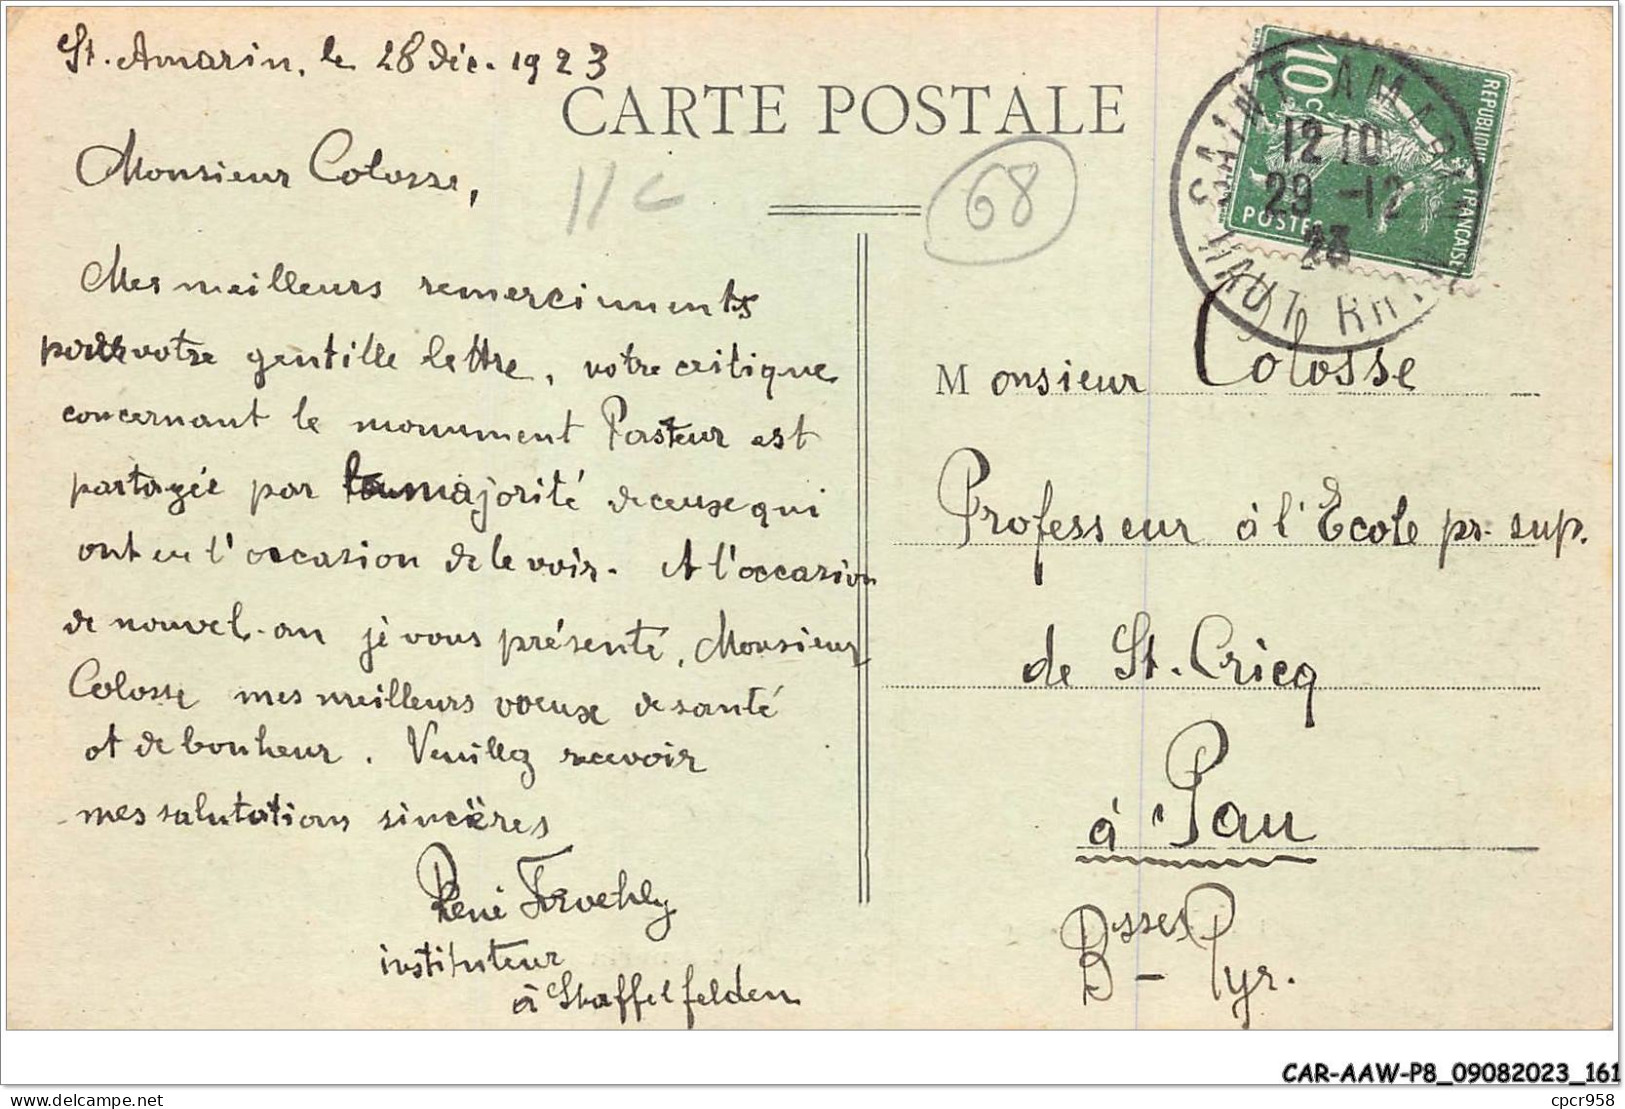 St. Amarin, le 28 déc. 1923
CARTE POSTALE
Monsieur Colosse,
11 c
68
Mes meilleurs remerciments
pour votre gentille lettre, votre critique
concernant le monument Pasteur est
partagée par la majorité de ceux qui
ont eu l'occasion de le voir. Et l'occasion
de nouvel-an je vous présente, Monsieur
Colosse mes meilleurs voeux de santé
et de bonheur. Veuillez recevoir
mes salutations sincères
René
instituteur
à Staffelfelden
10 c
REPUBLIQUE FRANCAISE
POSTES
SAINT AMARIN
12 10
29 -12
23
HAUT RHIN
Monsieur Colosse
Professeur à l'Ecole pr. sup.
de St. Cricq
à Pau
Bsses - Pyr.
CAR-AAW-P8_09082023_161
cpcr958